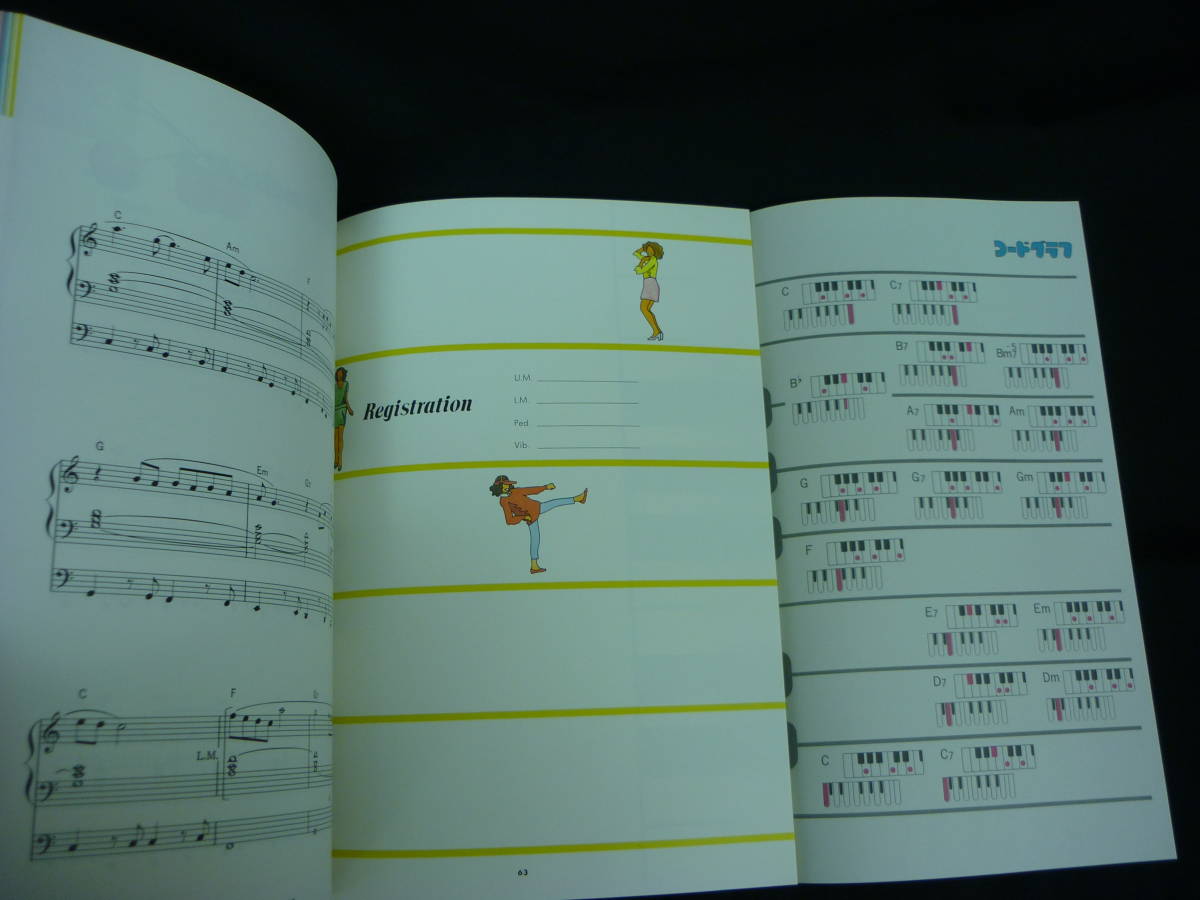 C
Am
F
G
Em
G7
C
F
G7
L.M.
Registration
U.M.
L.M.
Ped
Vib.
63
コードグラフ
C C7
B7 Bm7-5
B♭
A7 Am
G G7 Gm
F
E7 Em
D7 Dm
C C7